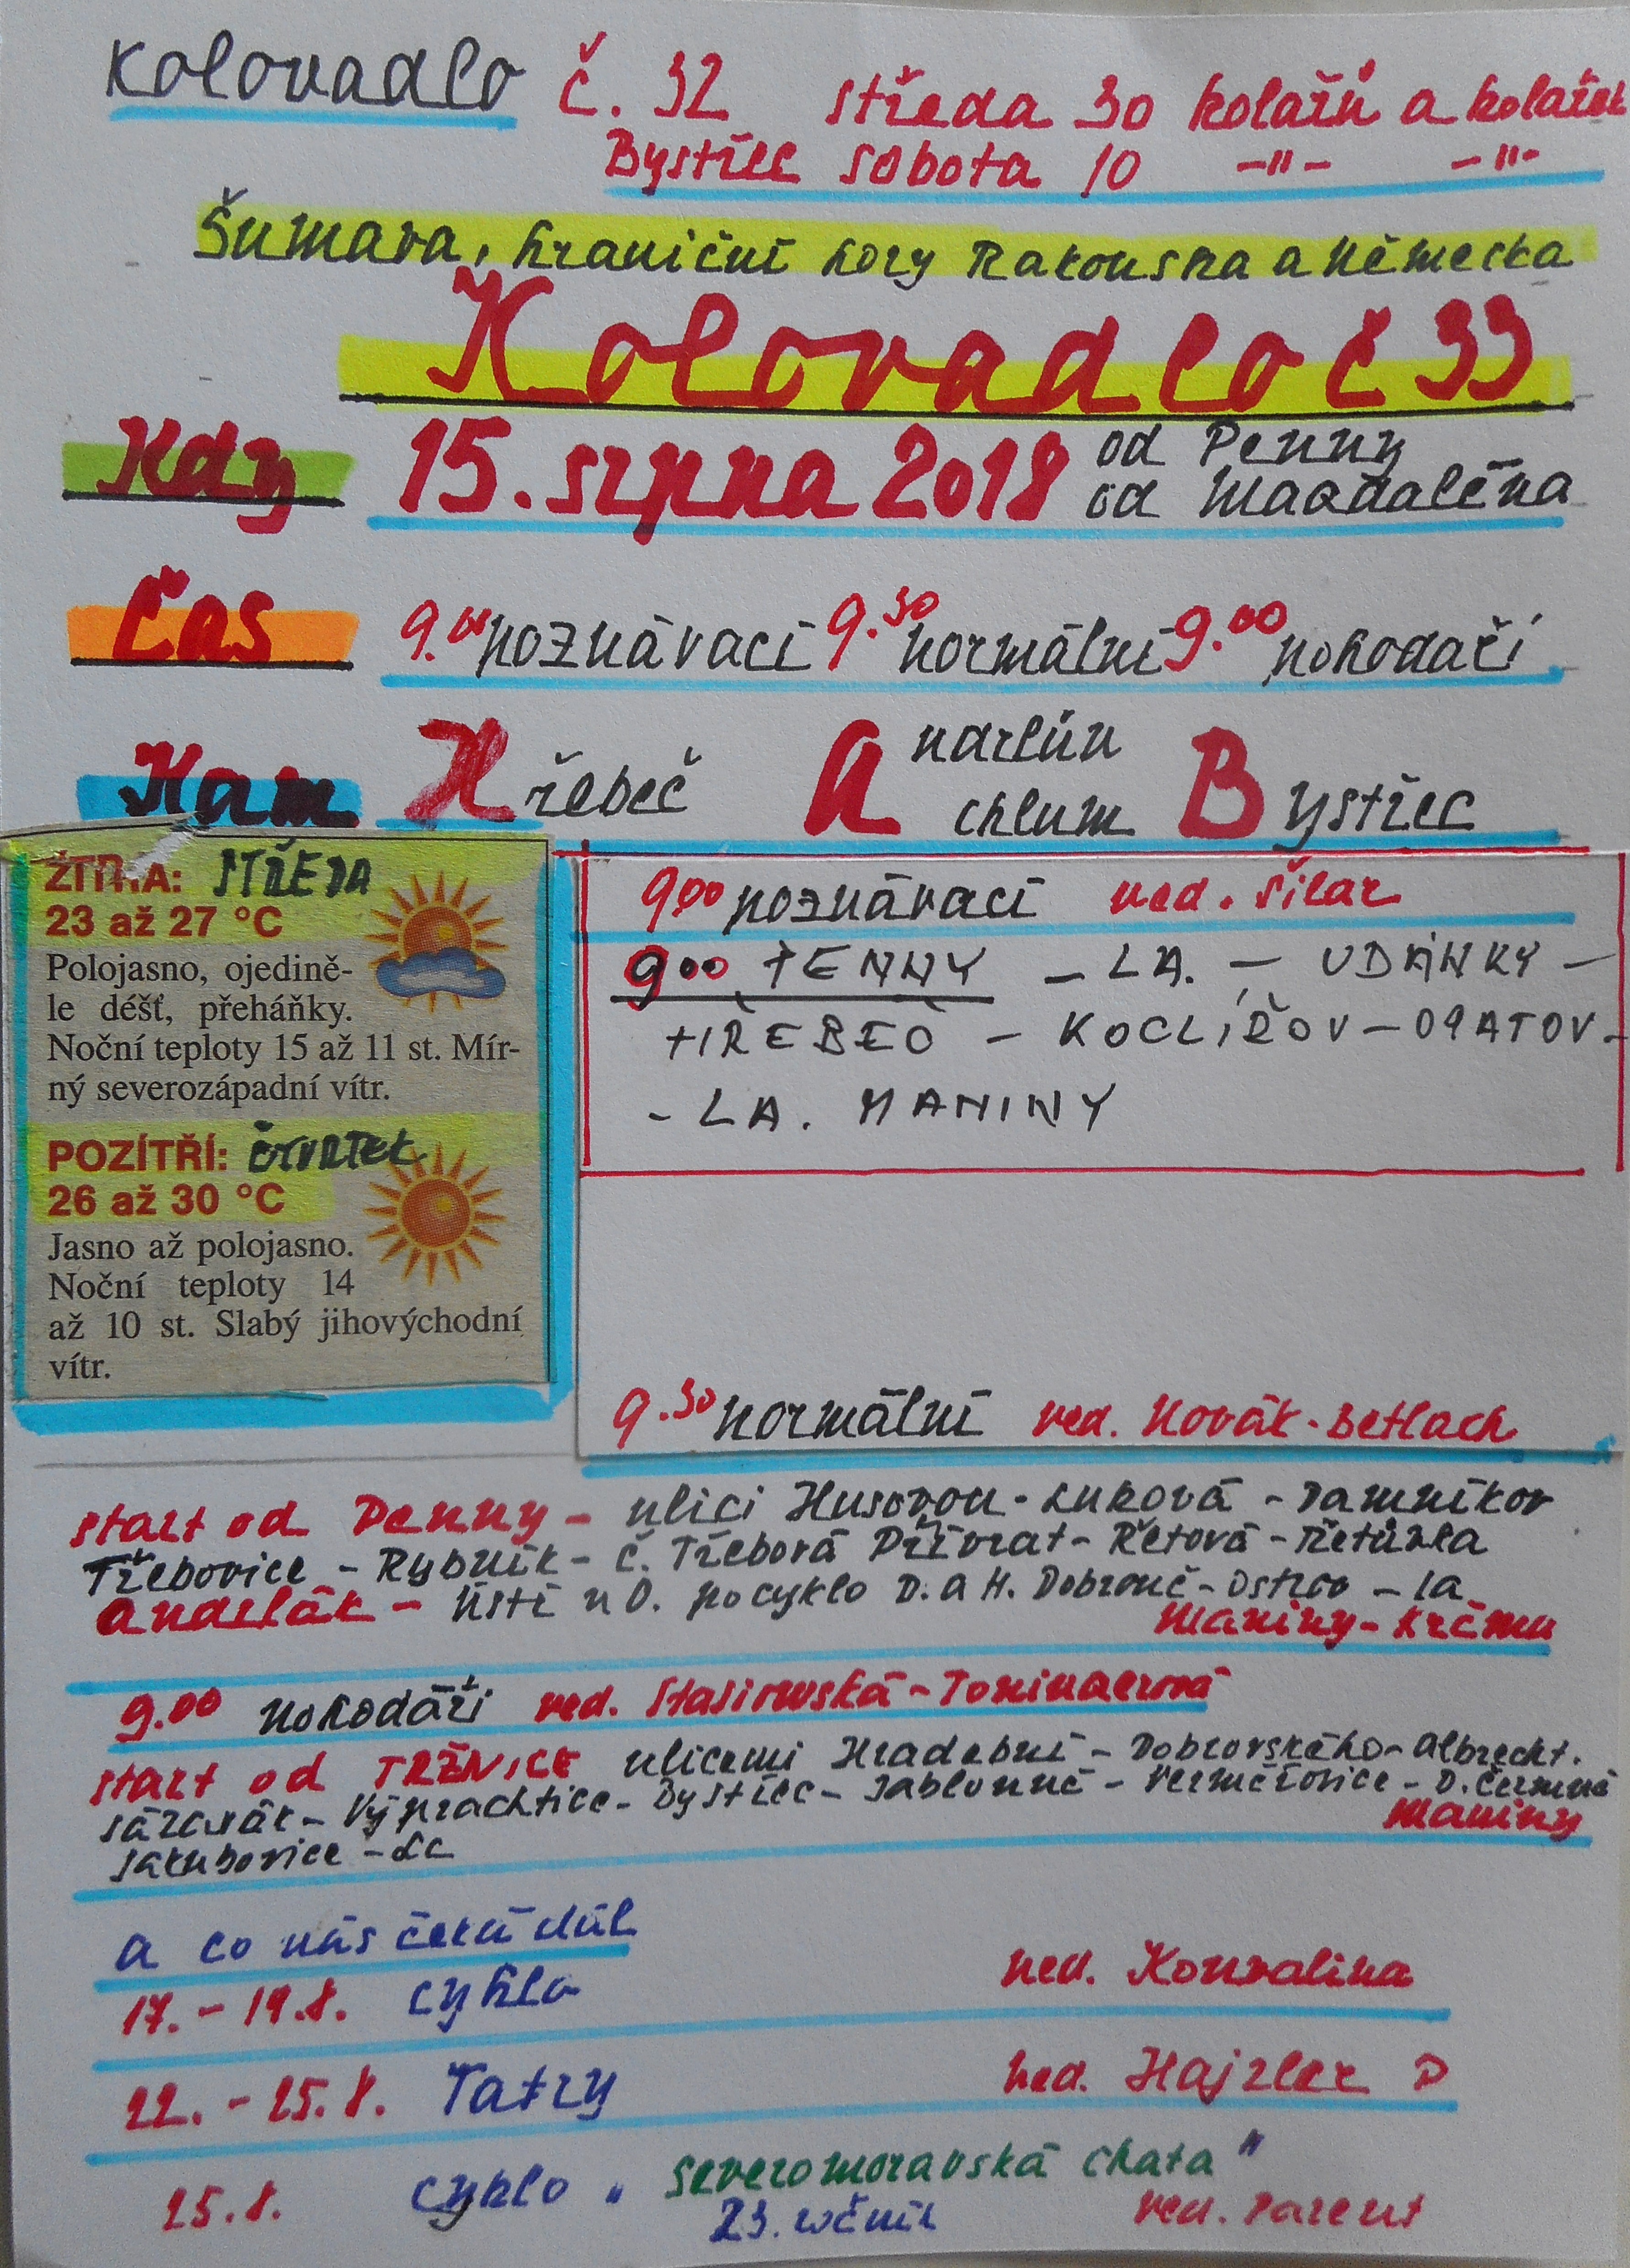 Kolovadlo č. 32 středa 30 kolařů a kolařek
Bystřec sobota 10 -"- -"-
Šumava, hraniční hory Rakouska a Německa
Kolovadlo č 33
Kdy 15. srpna 2018 od Penny
od Magdaléna
Čas 9.00 poznávací 9.30 normální 9.00 pohodáři
Kam Hřebeč Andrlův chlum Bystřec
ŽÍTRA: STŘEDA
23 až 27 °C
Polojasno, ojedině-
le déšť, přeháňky.
Noční teploty 15 až 11 st. Mír-
ný severozápadní vítr.
POZÍTŘÍ: ČTVRTEK
26 až 30 °C
Jasno až polojasno.
Noční teploty 14
až 10 st. Slabý jihovýchodní
vítr.
900 poznávací ved. Šilar
900 PENNY - LA. - UDÁNKY -
HŘEBEČ - KOCLÍŘOV - OPATOV -
- LA. MANINY
9.30 normální ved. Novák - Betlach
start od Penny - ulici Husovou - Luková - Damníkov
Třebovice - Rybník - Č. Třebová Přívrat - Řetová - Řetůvka
Andrlák - Ústí n O. po cyklo D. a H. Dobrouč - Ostrov - La
Maniny - Krčma
9.00 pohodáři ved. Stasiowská -
start od TRŽNICE ulicemi Hradební - Dobrovského - Albrecht.
Sázavák - Výprachtice - Bystřec - Jablonné - Verměřovice - D. Čermná
Maniny
Jakubovice - La
a co nás čeká dál
17. - 19.8. cyklo ved. Konvalina
22. - 25.8. Tatry ved. Hajzler P
25.8. cyklo " Severomoravská chata "
23. ročník ved. Parent